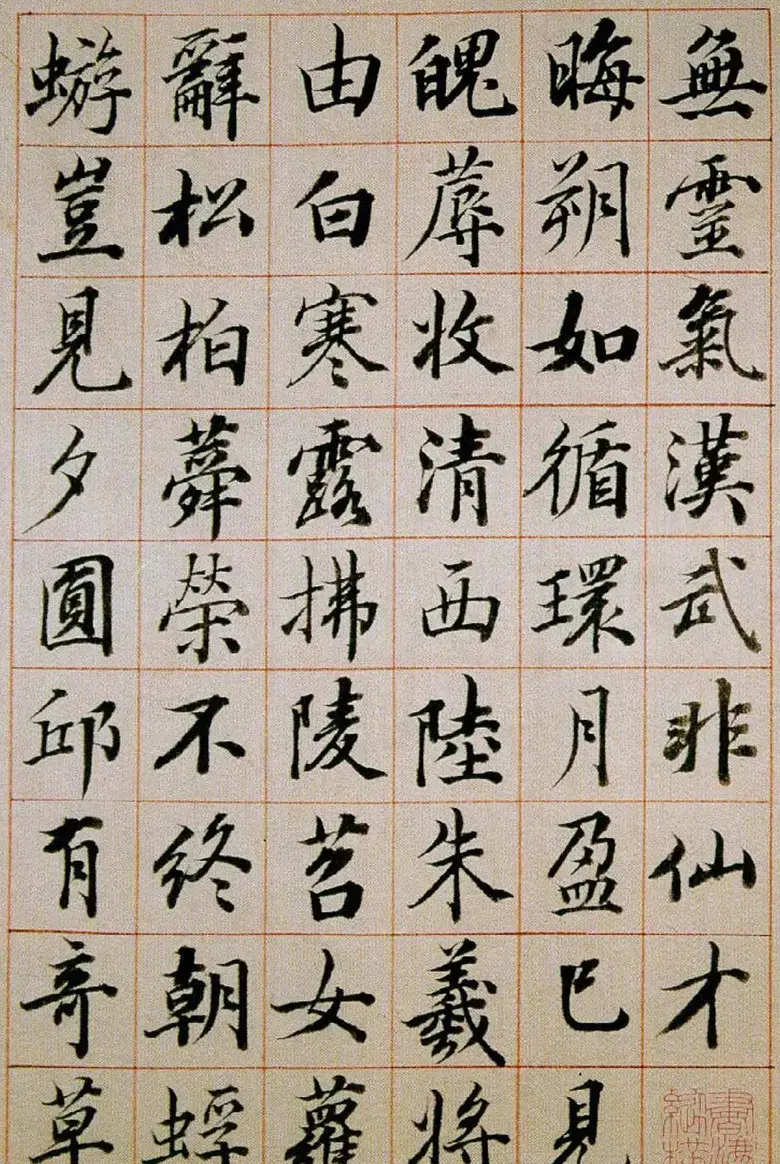 無靈氣漢武非仙才
晦朔如循環月盈已見
魄蓐收清西陸朱羲將
由白寒露拂陵苕女蘿
辭松柏蕣榮不終朝蜉
蝣豈見夕圓邱有奇草